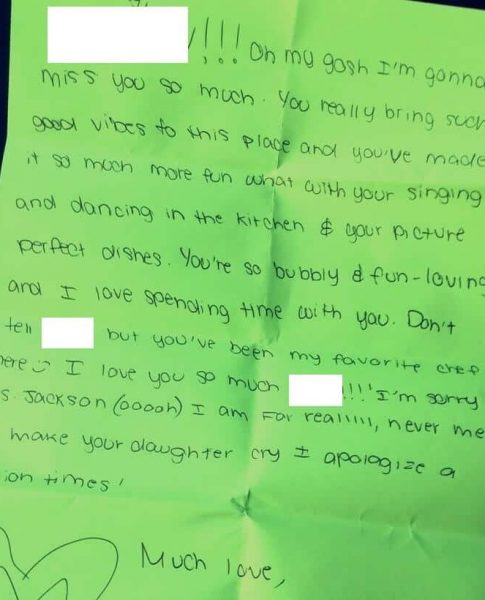 !!! Oh my gosh I'm gonna
miss you so much. You really bring such
good vibes to this place and you've made
it so much more fun what with your singing
and dancing in the kitchen & your picture
perfect dishes. You're so bubbly & fun-loving
and I love spending time with you. Don't
tell but you've been my favorite chef
here I love you so much !!! I'm sorry
s. Jackson (ooooh) I am For realllll, never me
make your daughter cry I apologize a
ion times!
Much love,